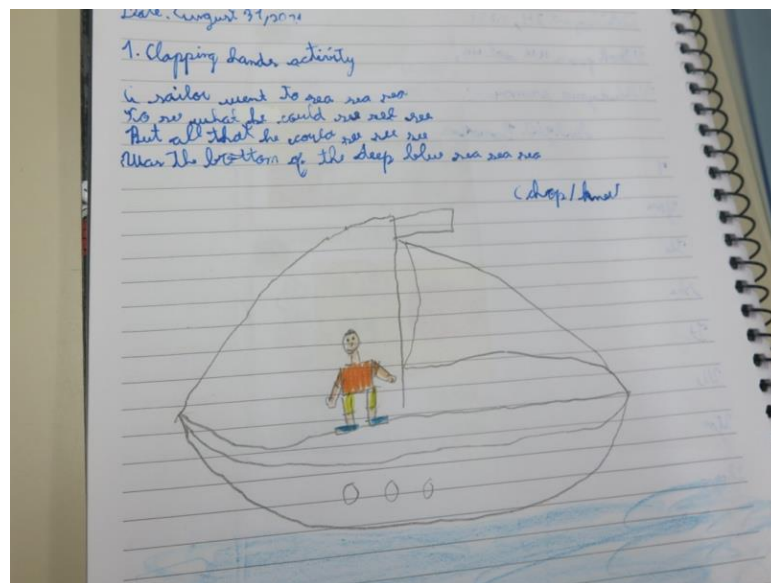 Date: August 31, 202
1. Clapping hands activity
A sailor went To sea sea sea
To se what he could se see see
But all that he could see see see
Was The bottom of the deep blue sea sea sea
(chop/knee